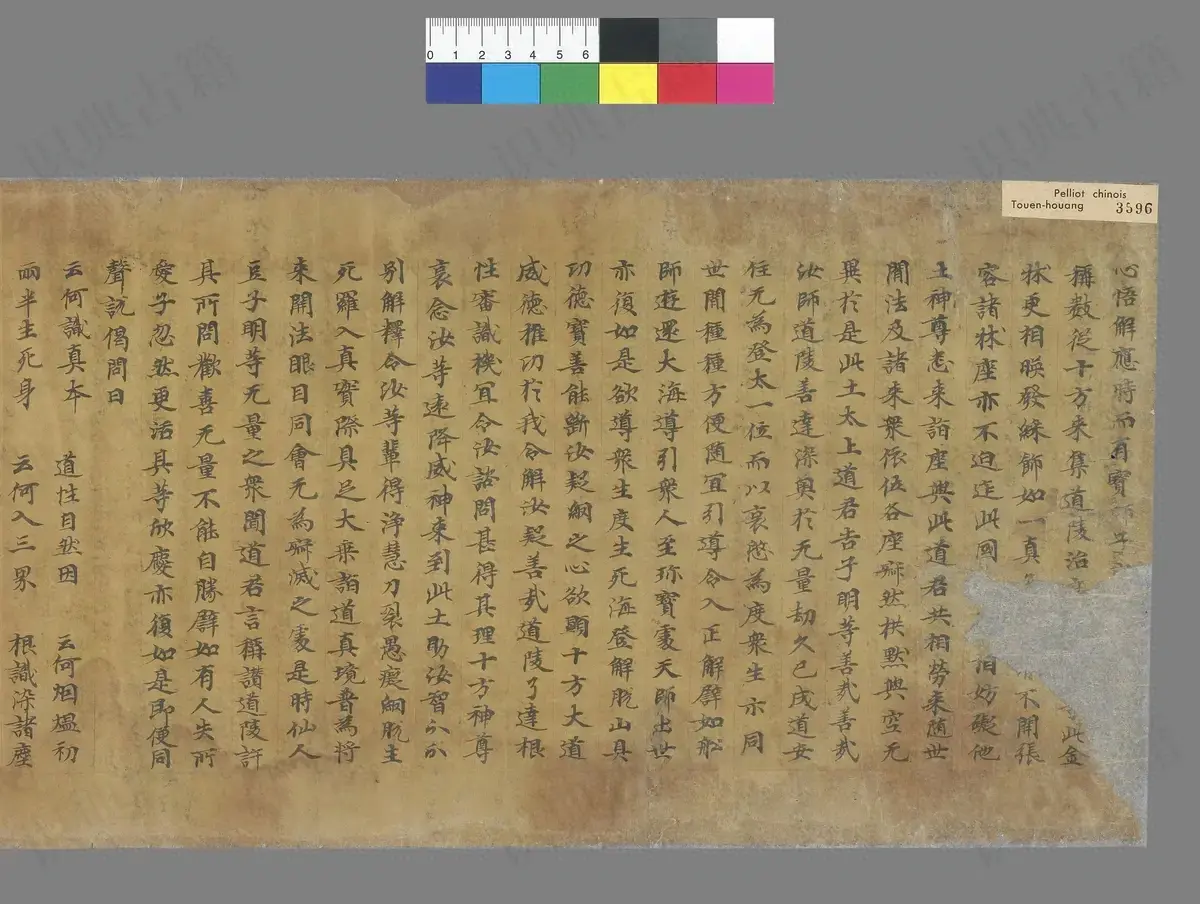 Pelliot chinois
Touen-houang 3596
0 1 2 3 4 5 6
心悟解應時而有寶師子
稱數從十方來集道陵治 此金
牀更相暎發綵飾如一真 不開張
容諸牀座亦不迫迮此國 相妨礙他
土神尊悉來詣座與此道君共相勞來隨世
聞法及諸來衆依位各座寂然拱默與空无
異於是此土太上道君告子明等善哉善哉
汝師道陵善達深奥於无量劫久已成道安
住无為登太一位而以哀愍為度衆生示同
世間種種方便随宜引導令入正解譬如船
師遊還大海導引衆人至珎寶處天師出世
亦復如是欲導衆生度生死海登解脫山具
功德寶善能斷汝疑網之心欲顯十方大道
威德推功於我令解汝疑善哉道陵了達根
性審識機冝令汝諮問甚得其理十方神尊
哀念汝等遠降威神來到此土助汝智分分
别解釋令汝等輩得淨慧刀裂愚癡網脫生
死羅入真實際具足大乘詣道真境普為將
來開法眼目同會无為寂滅之處是時仙人
豆子明等无量之衆聞道君言稱讃道陵許
其所問歡喜无量不能自勝譬如有人失所
愛子忽然更活其等欣慶亦復如是即使同
聲說偈問曰
云何識真本 道性自然因 云何烟煴初
兩半生死身 云何入三界 根識染諸塵
識典古籍